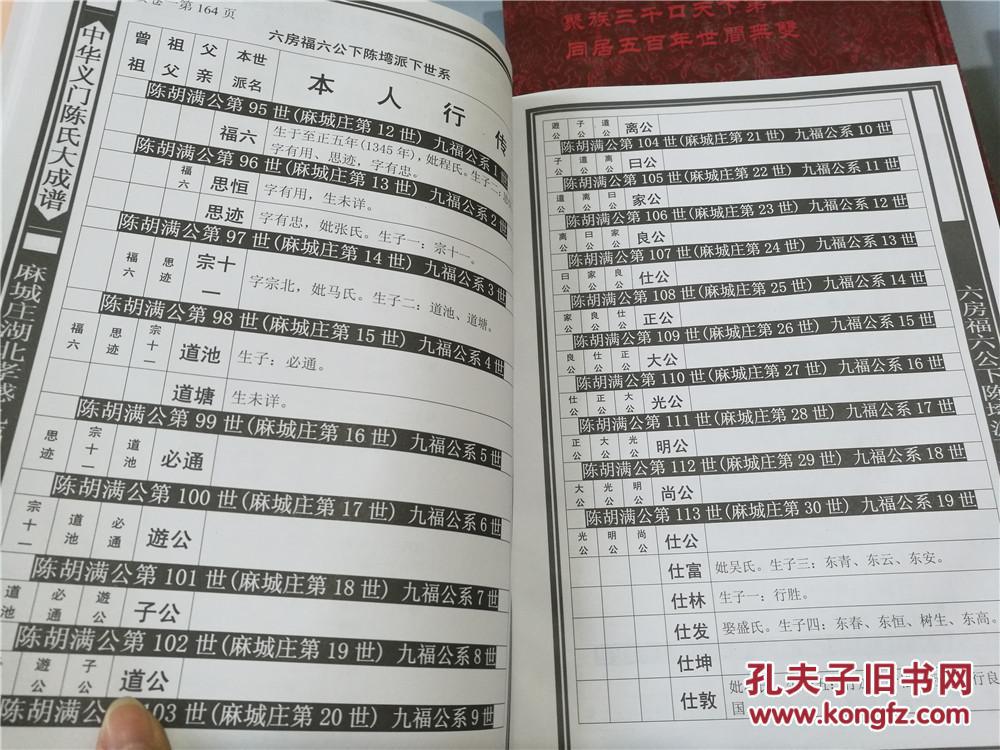 卷一第 164 页
中华义门陈氏大成谱
麻城庄湖北孝感
六房福六公下陈塆派下世系
曾祖 祖父 父亲 本世派名 本人行传
陈胡满公第 95 世(麻城庄第 12 世) 九福公系 1 世
福六 生于至正五年(1345 年),妣程氏。生子二:
字有用、思迹,字有忠。
陈胡满公第 96 世(麻城庄第 13 世) 九福公系 2 世
福六 思恒 字有用,生未详。
思迹 字有忠,妣张氏。生子一:宗十一。
陈胡满公第 97 世(麻城庄第 14 世) 九福公系 3 世
福六 思迹 宗十一 字宗北,妣马氏。生子二:道池、道塘。
陈胡满公第 98 世(麻城庄第 15 世) 九福公系 4 世
福六 思迹 宗十一 道池 生子:必通。
道塘 生未详。
陈胡满公第 99 世(麻城庄第 16 世) 九福公系 5 世
思迹 宗十一 道池 必通
陈胡满公第 100 世(麻城庄第 17 世) 九福公系 6 世
宗十一 道池 必通 遊公
陈胡满公第 101 世(麻城庄第 18 世) 九福公系 7 世
道池 必通 遊公 子公
陈胡满公第 102 世(麻城庄第 19 世) 九福公系 8 世
遊公 子公 道公
陈胡满公 103 世(麻城庄第 20 世) 九福公系 9 世
聚族三千口天下第
同居五百年世間無雙
遊公 子公 道公 离公
陈胡满公第 104 世(麻城庄第 21 世) 九福公系 10 世
子公 道公 离公 曰公
陈胡满公第 105 世(麻城庄第 22 世) 九福公系 11 世
道公 离公 曰公 家公
陈胡满公第 106 世(麻城庄第 23 世) 九福公系 12 世
离公 曰公 家公 良公
陈胡满公第 107 世(麻城庄第 24 世) 九福公系 13 世
曰公 家公 良公 仕公
陈胡满公第 108 世(麻城庄第 25 世) 九福公系 14 世
家公 良公 仕公 正公
陈胡满公第 109 世(麻城庄第 26 世) 九福公系 15 世
良公 仕公 正公 大公
陈胡满公第 110 世(麻城庄第 27 世) 九福公系 16 世
仕公 正公 大公 光公
陈胡满公第 111 世(麻城庄第 28 世) 九福公系 17 世
正公 大公 光公 明公
陈胡满公第 112 世(麻城庄第 29 世) 九福公系 18 世
大公 光公 明公 尚公
陈胡满公第 113 世(麻城庄第 30 世) 九福公系 19 世
光公 明公 尚公 仕公
仕富 妣吴氏。生子三:东青、东云、东安。
仕林 生子一:行胜。
仕发 娶盛氏。生子四:东春、东恒、树生、东高。
仕坤
仕敦 妣
行良
国
六房福六公下陈塆派
孔夫子旧书网
www.kongfz.com